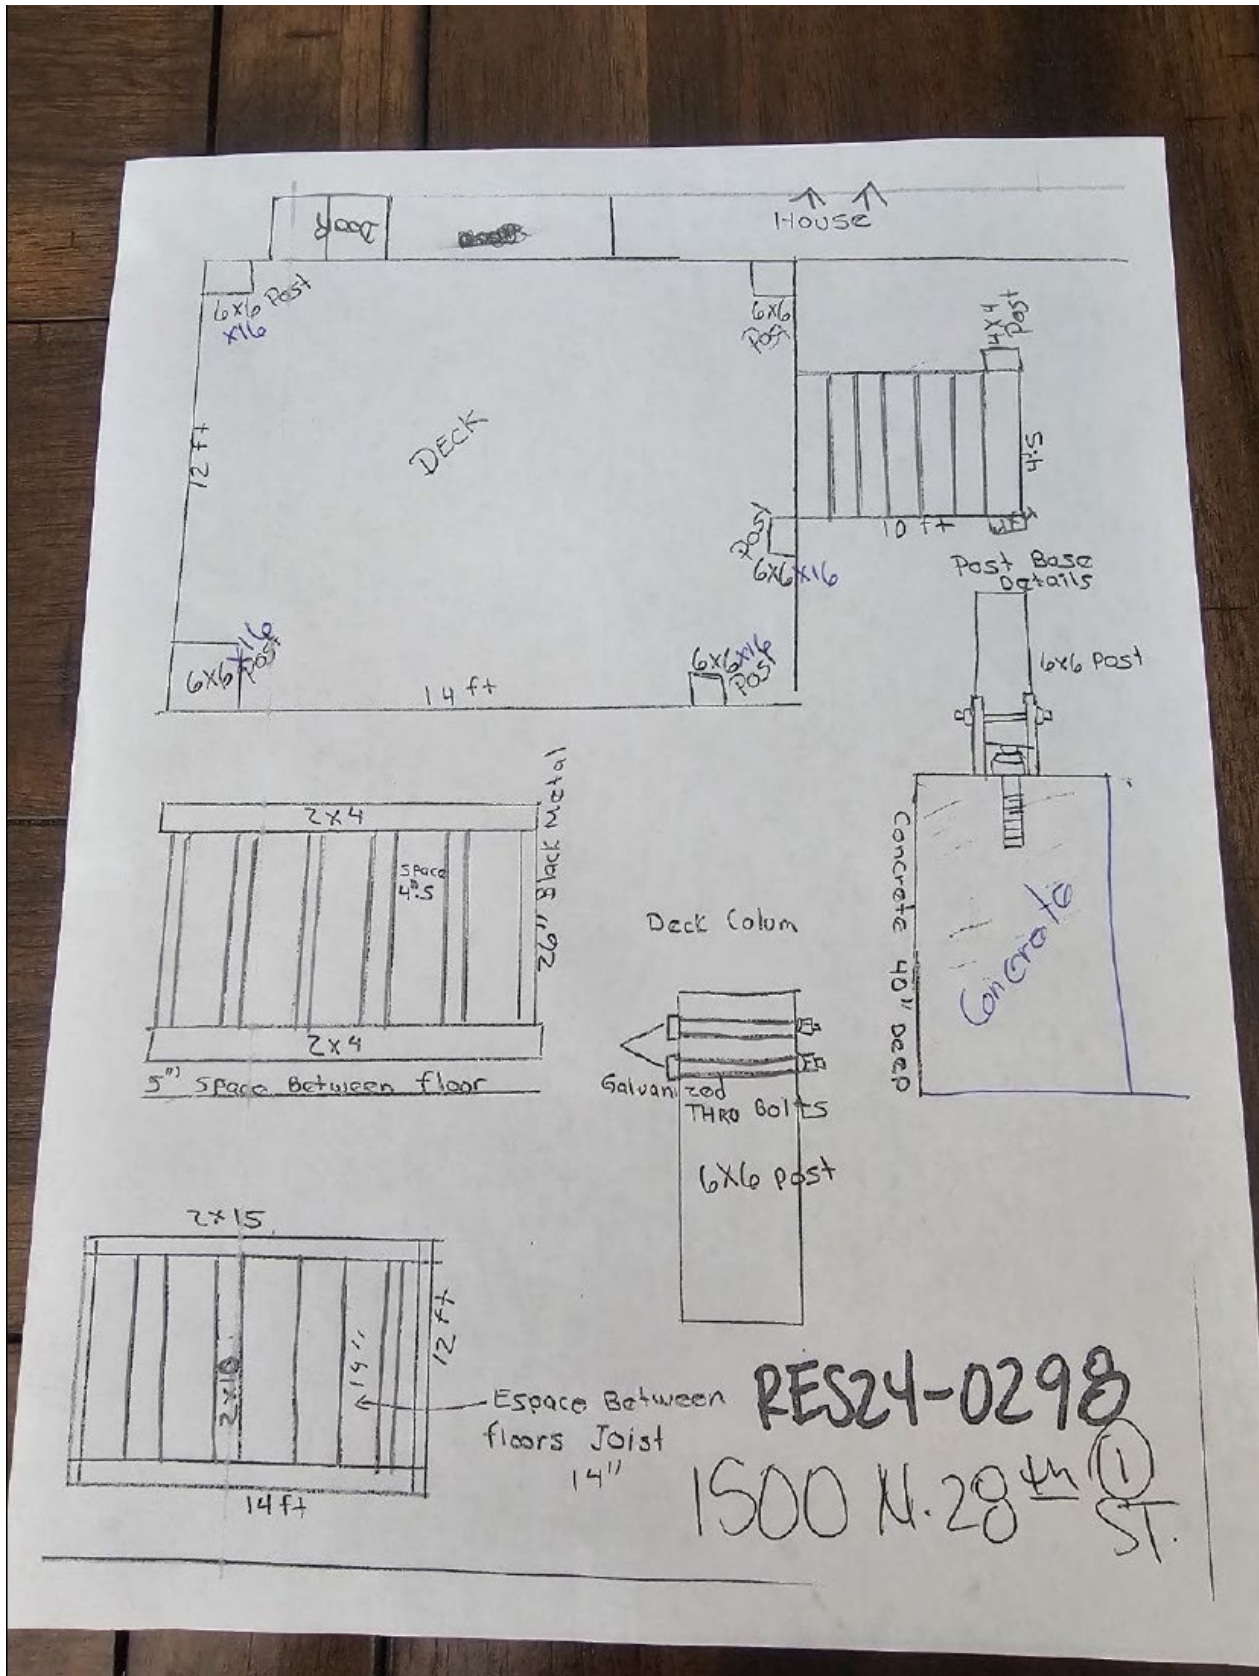 Door
House
6x6 Post
x16
6x6
Post
4x4
Post
12 ft
DECK
4:5
10 ft
Post
6x6x16
6x6x16
Post
14 ft
6x6x16
Post
Post Base
Details
6x6 Post
2x4
Space
4".5
26" Black Metal
2x4
5" Space Between floor
Deck Colum
Galvanized
THRO Bolts
6x6 post
Concrete 40" Deep
Concrete
2x15
2x10
12 ft
14 ft
Espace Between
floors Joist
14"
RES24-0298
1500 N. 28th ST.
1